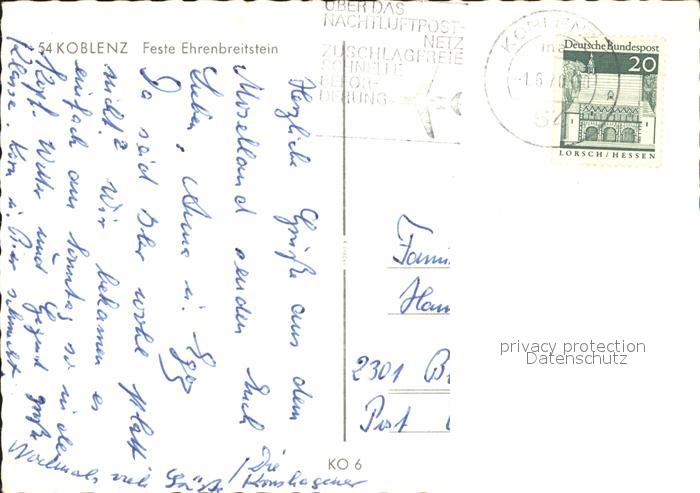 54 KOBLENZ Feste Ehrenbreitstein
ÜBER DAS
NACHTLUFTPOST-
NETZ
ZUSCHLAGFREIE
SCHNELLE
BEFÖR-
DERUNG
KOBLENZ
-1.6.70
54
Deutsche Bundespost
20
LORSCH/HESSEN
Herzliche Grüße aus dem
Moselland senden Euch
LuLu, Anne u.
Da seid Ihr wohl platt
nicht? Wir bekamen es
einfach am Sonntag so in den
Kopf. Wetter und Gegend große
Klasse. Korn u. Bier schmeckt.
Nochmals viele Grüße / Die
Kronshagener
Fami
Han
2301
Post
KO 6
privacy protection
Datenschutz